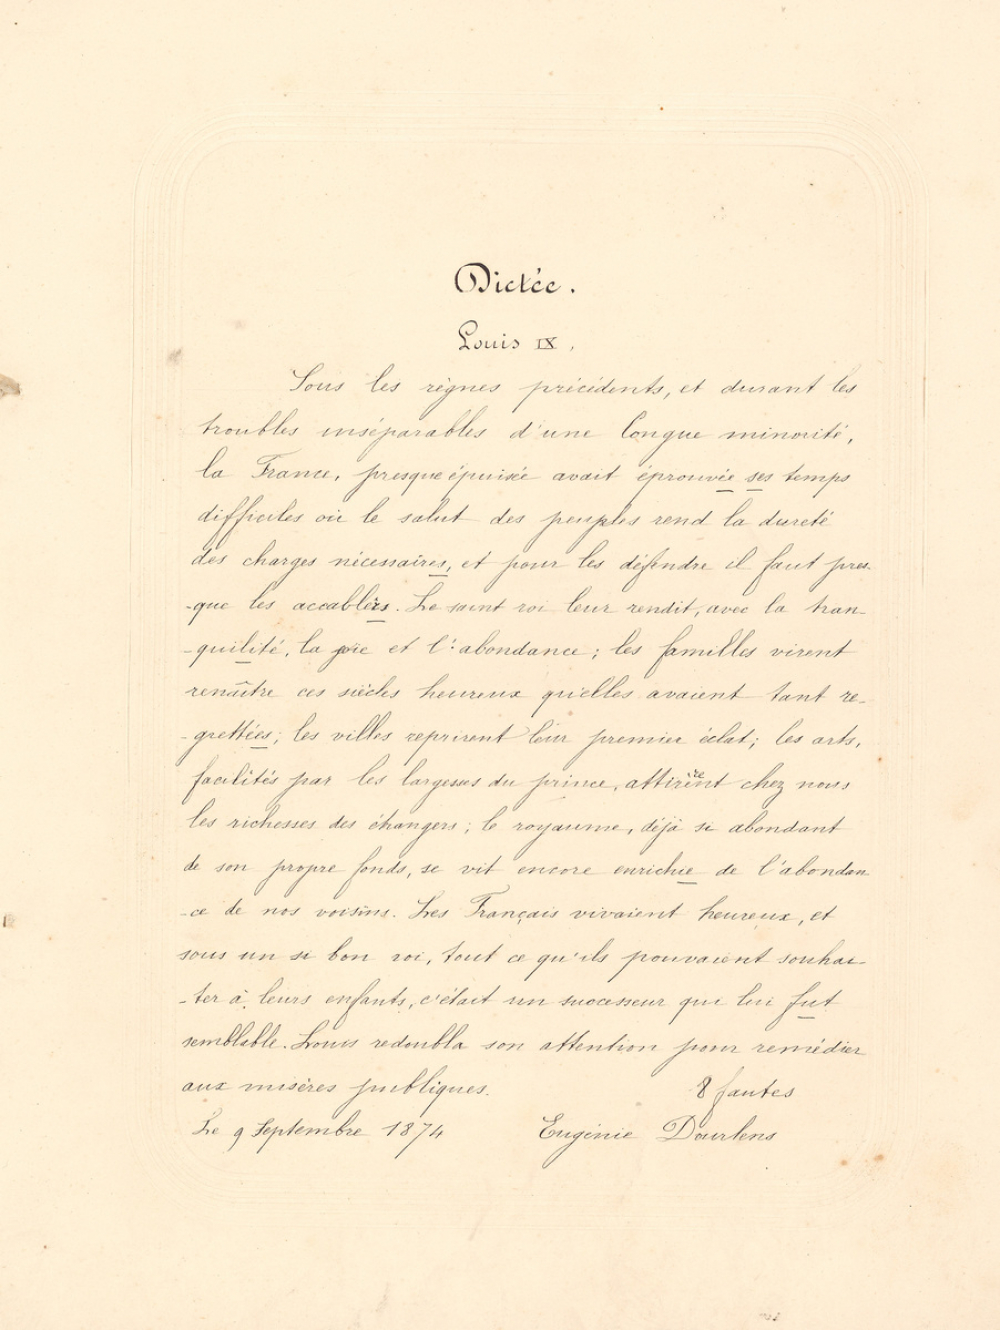 Dictée.
Louis IX,
Sous les règnes précédents, et durant les
troubles inséparables d'une longue minorité,
la France, presque épuisée avait éprouvée ses temps
difficiles où le salut des peuples rend la dureté
des charges nécessaires, et pour les défendre il faut pres
-que les accablers. Le saint roi leur rendit, avec la tran-
-quilité, la joie et l'abondance ; les familles virent
renaître ces siècles heureux qu'elles avaient tant re-
-grettées ; les villes reprirent leur premier éclat ; les arts,
facilités par les largesses du prince, attirèrent chez nous
les richesses des étrangers ; le royaume, déjà si abondant
de son propre fonds, se vit encore enrichie de l'abondan
-ce de nos voisins. Les Français vivaient heureux, et
sous un si bon roi, tout ce qu'ils pouvaient souhai-
-ter à leurs enfants, c'était un successeur qui lui fut
semblable. Louis redoubla son attention pour remédier
aux misères publiques.
8 fautes
Le 9 Septembre 1874
Eugénie Dourlens